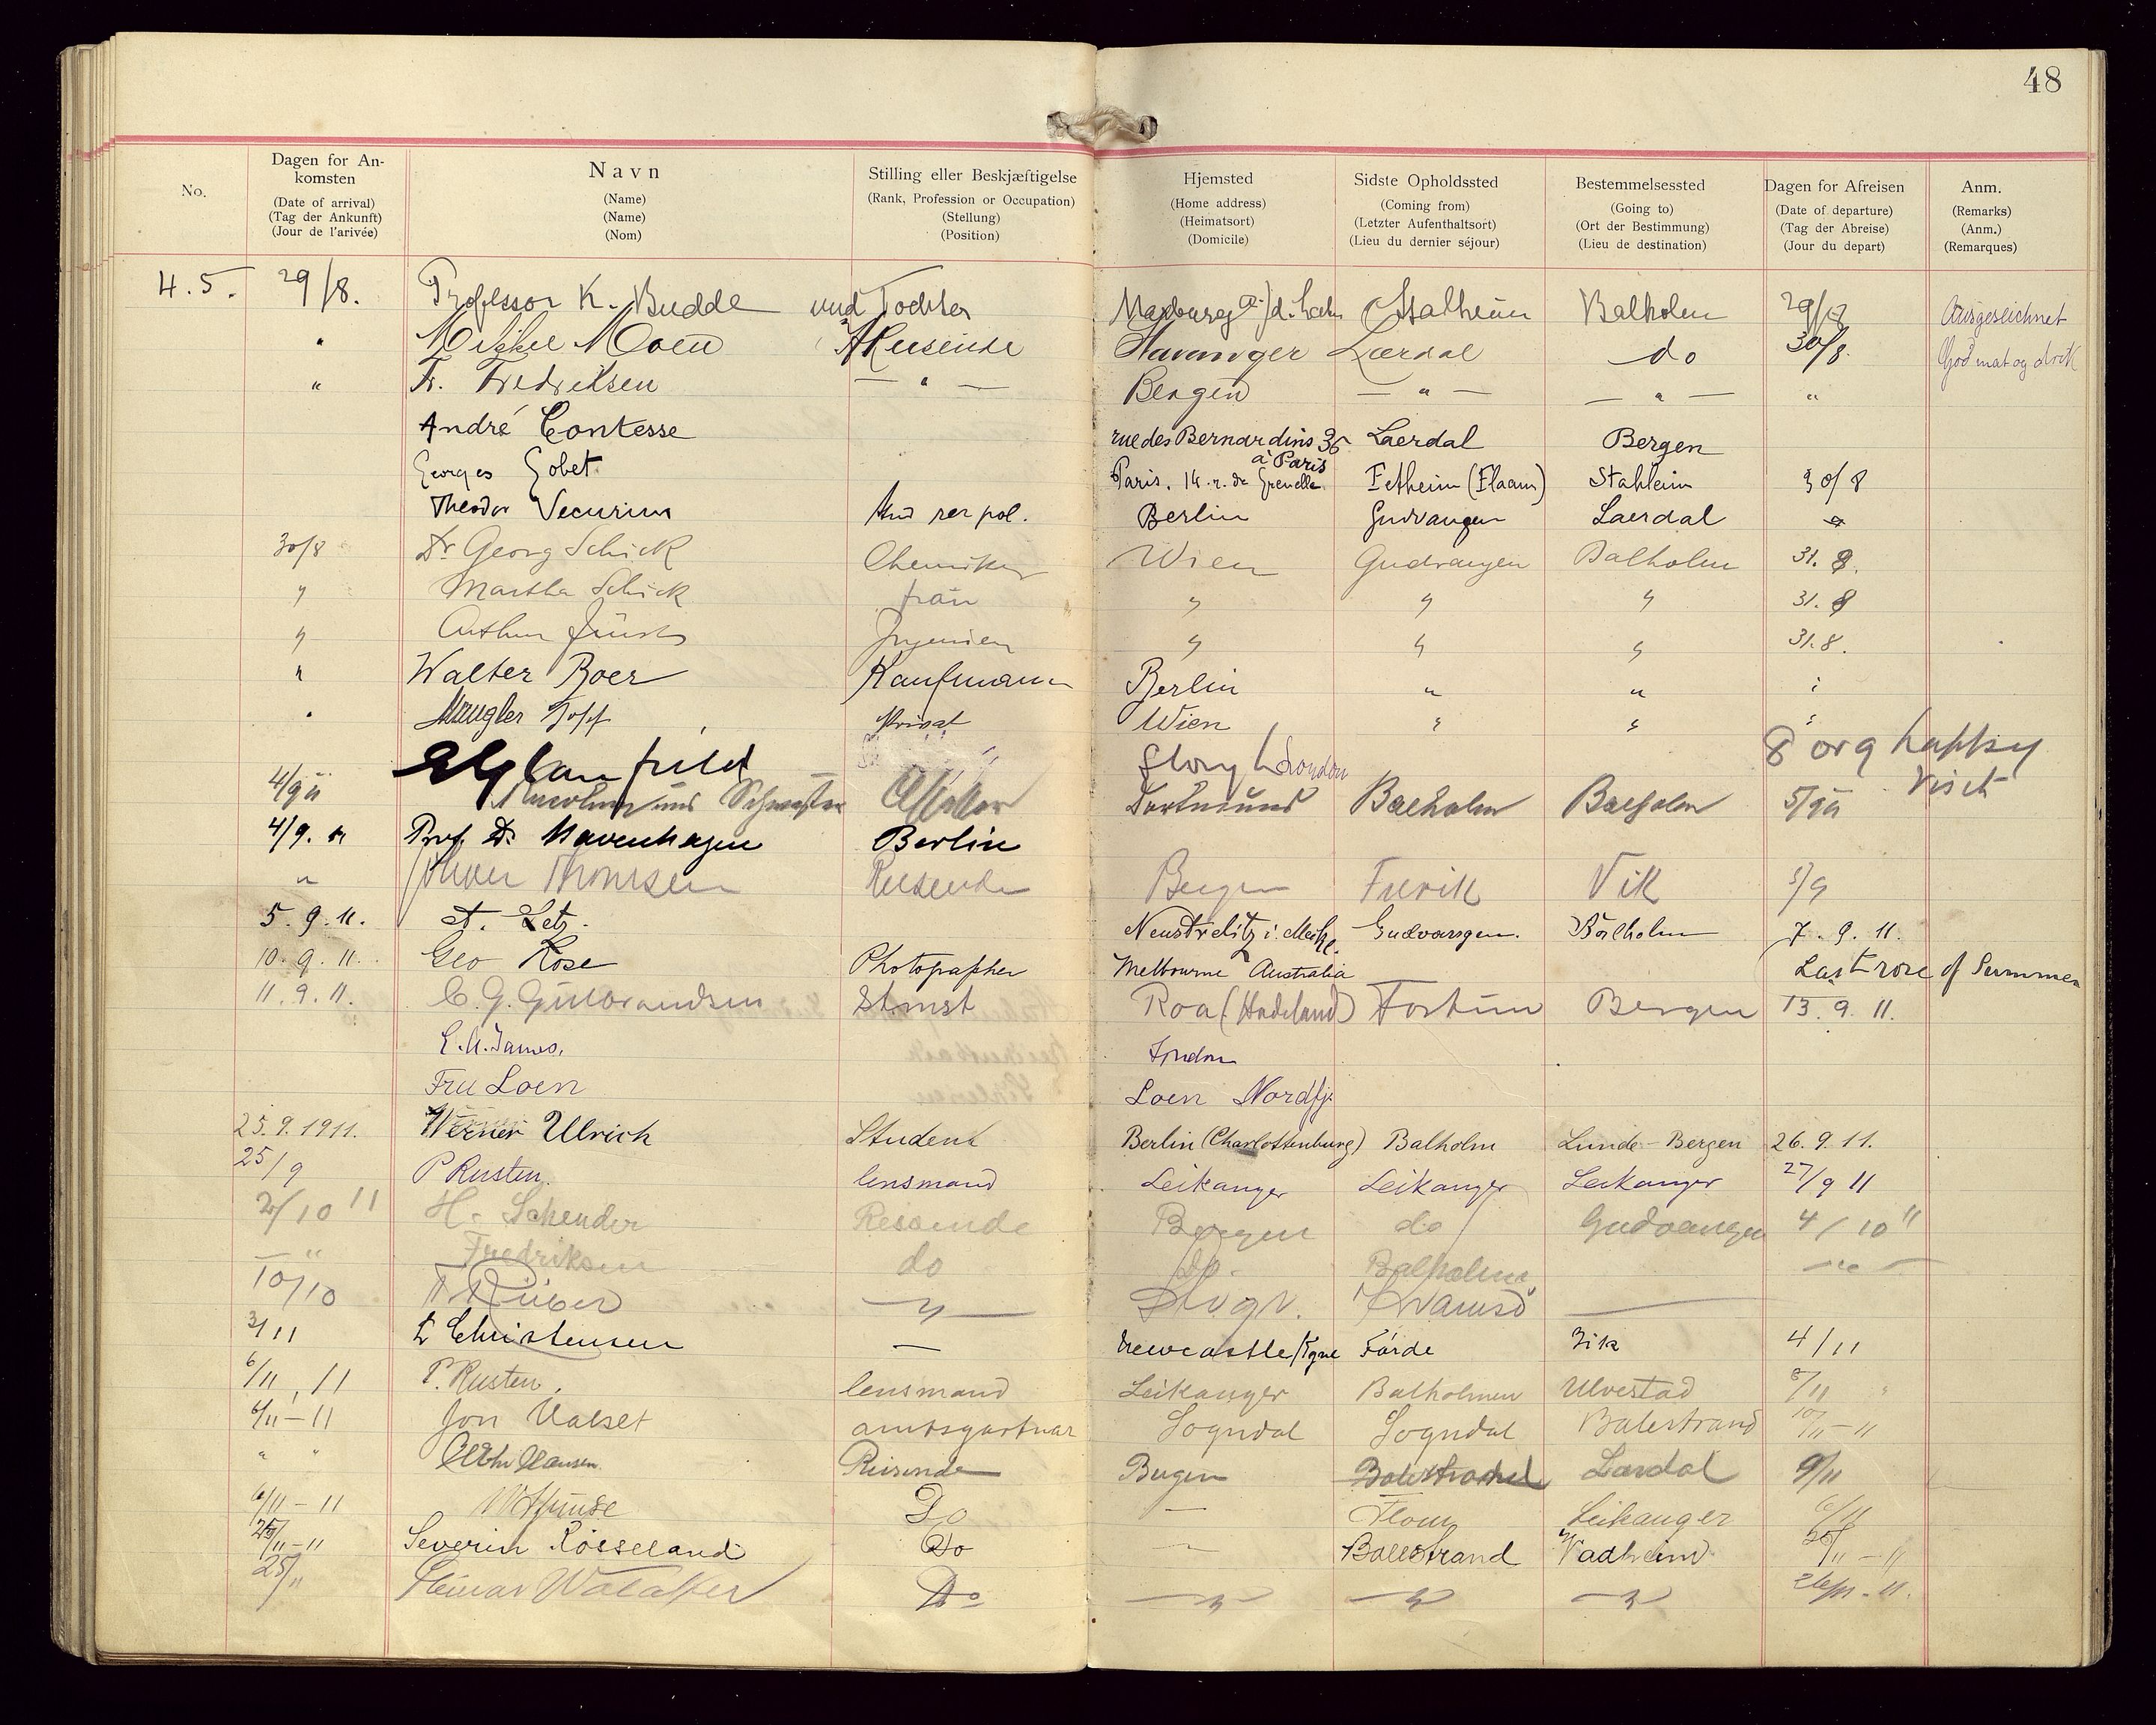 48
No.
Dagen for An-
komsten
(Date of arrival)
(Tag der Ankunft)
(Jour de l'arivée)
Navn
(Name)
(Name)
(Nom)
Stilling eller Beskjæftigelse
(Rank, Profession or Occupation)
(Stellung)
(Position)
Hjemsted
(Home address)
(Heimatsort)
(Domicile)
Sidste Opholdssted
(Coming from)
(Letzter Aufenthaltsort)
(Lieu du dernier séjour)
Bestemmelsessted
(Going to)
(Ort der Bestimmung)
(Lieu de destination)
Dagen for Afreisen
(Date of departure)
(Tag der Abreise)
(Jour du depart)
Anm.
(Remarks)
(Anm.)
(Remarques)
4.5. 29/8. Professor K. Budde und Tochter Marburg a/d. Lahn Stalheim Balholm 29/8 Ausgezeichnet
" Mikkel Moen Reisende Stavanger Lærdal do 30/8. God mat og drik
" Fr. Fredriksen — " — Bergen — " — — " — "
André Contesse rue des Bernardins 35 à Paris Laerdal Bergen
Georges Gobet Paris. 14. r. de Grenelle Fetheim (Flaam) Stahleim 30/8
Theodor rer pol. Berlin Gudvangen Laerdal
30/8 Dr Georg Schick Chemiker Wien Gudvangen Balholm 31. 8.
" Martha Schick frau " " " 31. 8
" Arthur Ingenieur " " " 31.8.
" Walter Boer Kaufmann Berlin " " "
" Privat Wien " " "
London
8 org happy
visit
4/9 und Schwester Dortmund Balholm Balholm 5/9
4/9. 11 Prof. Dr. Berlin
" Johan Thomsen Reisende Bergen Fresvik Vik 5/9
5. 9. 11. A. Letz. Neustrelitz i. Meckl. Gudvangen. Balholm 7. 9. 11.
10. 9. 11. Geo Rose Photographer Melbourne Australia Last rose of Summer
11. 9. 11. C. G. Gulbrandsen St.mst Roa (Hadeland) Fortun Bergen 13. 9. 11.
E. A. James. London
Fru Loen Loen Nordfj.
25. 9. 1911. Werner Ulrich Student Berlin (Charlottenburg) Balholm Lunde - Bergen 26. 9. 11.
25/9 P Rusten. lensmand Leikanger Leikanger Leikanger 27/9 11
2/10 11 H. Schender Reisende Bergen do Gudvangen 4/10 11
— " Fredriksen do do. Balholm — " —
10/10 — " — Kvamsö
3/11 L Christensen — Newcastle/Tyne Förde Vik 4/11
6/11, 11 P. Rusten. lensmand Leikanger Balholmen Ulvestad 8/11 "
6/11 – 11 Jon Ualset amtsgartnar Sogndal Sogndal Balestrand 10/11 – 11
" " Hansen Reisende Bergen Balestrand Lærdal 9/11
6/11 – 11 Do — Flom Leikanger 6/11
25/11 – 11 Severin Rösseland Do — Balestrand Vadheim 26/11 – 11
25/11 Do — " — — " — — " — 26/11 – 11.